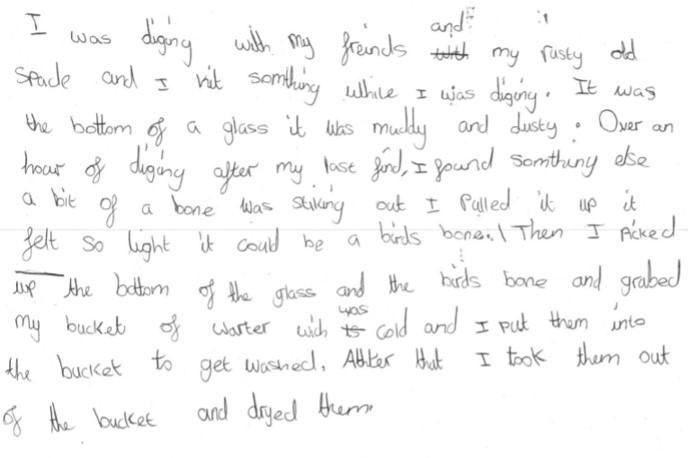 I was diging with my freinds and my rusty old
spade and I hit somthing while I was diging. It was
the bottom of a glass it was muddy and dusty. Over an
hour of diging after my last find, I found somthing else
a bit of a bone was stiking out I Pulled it up it
felt so light it could be a birds bone. Then I Picked
up the bottom of the glass and the birds bone and grabed
my bucket of warter wich was cold and I put them into
the bucket to get washed. Athter that I took them out
of the bucket and dryed them